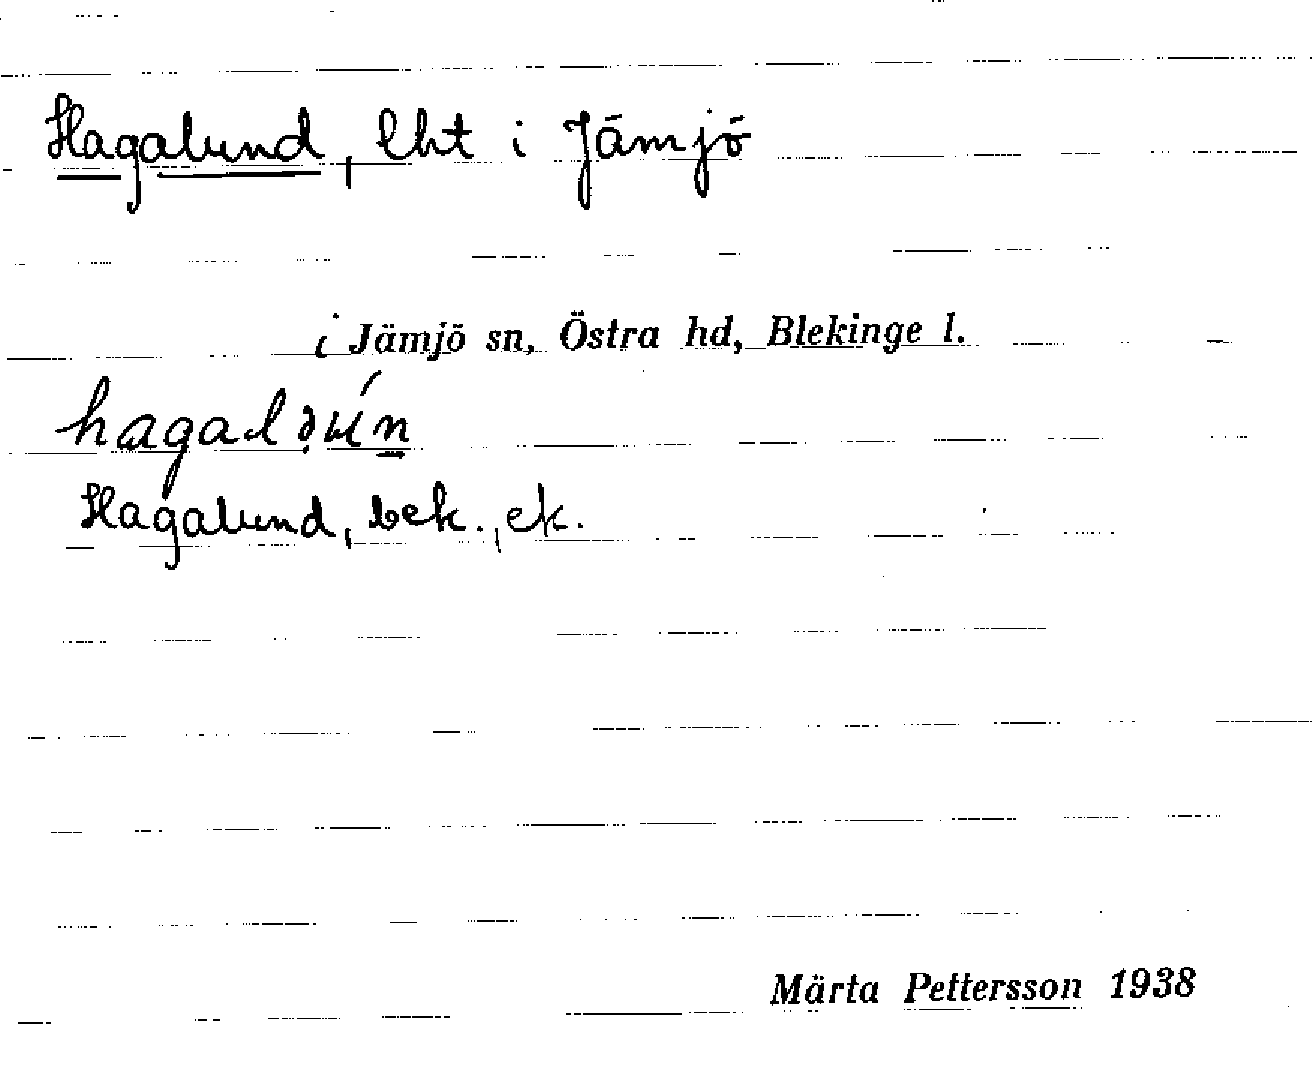 Hagalund, lht i Jämjö
i Jämjö sn, Östra hd, Blekinge l.
Hagalund, bek., ek.
Märta Pettersson 1938